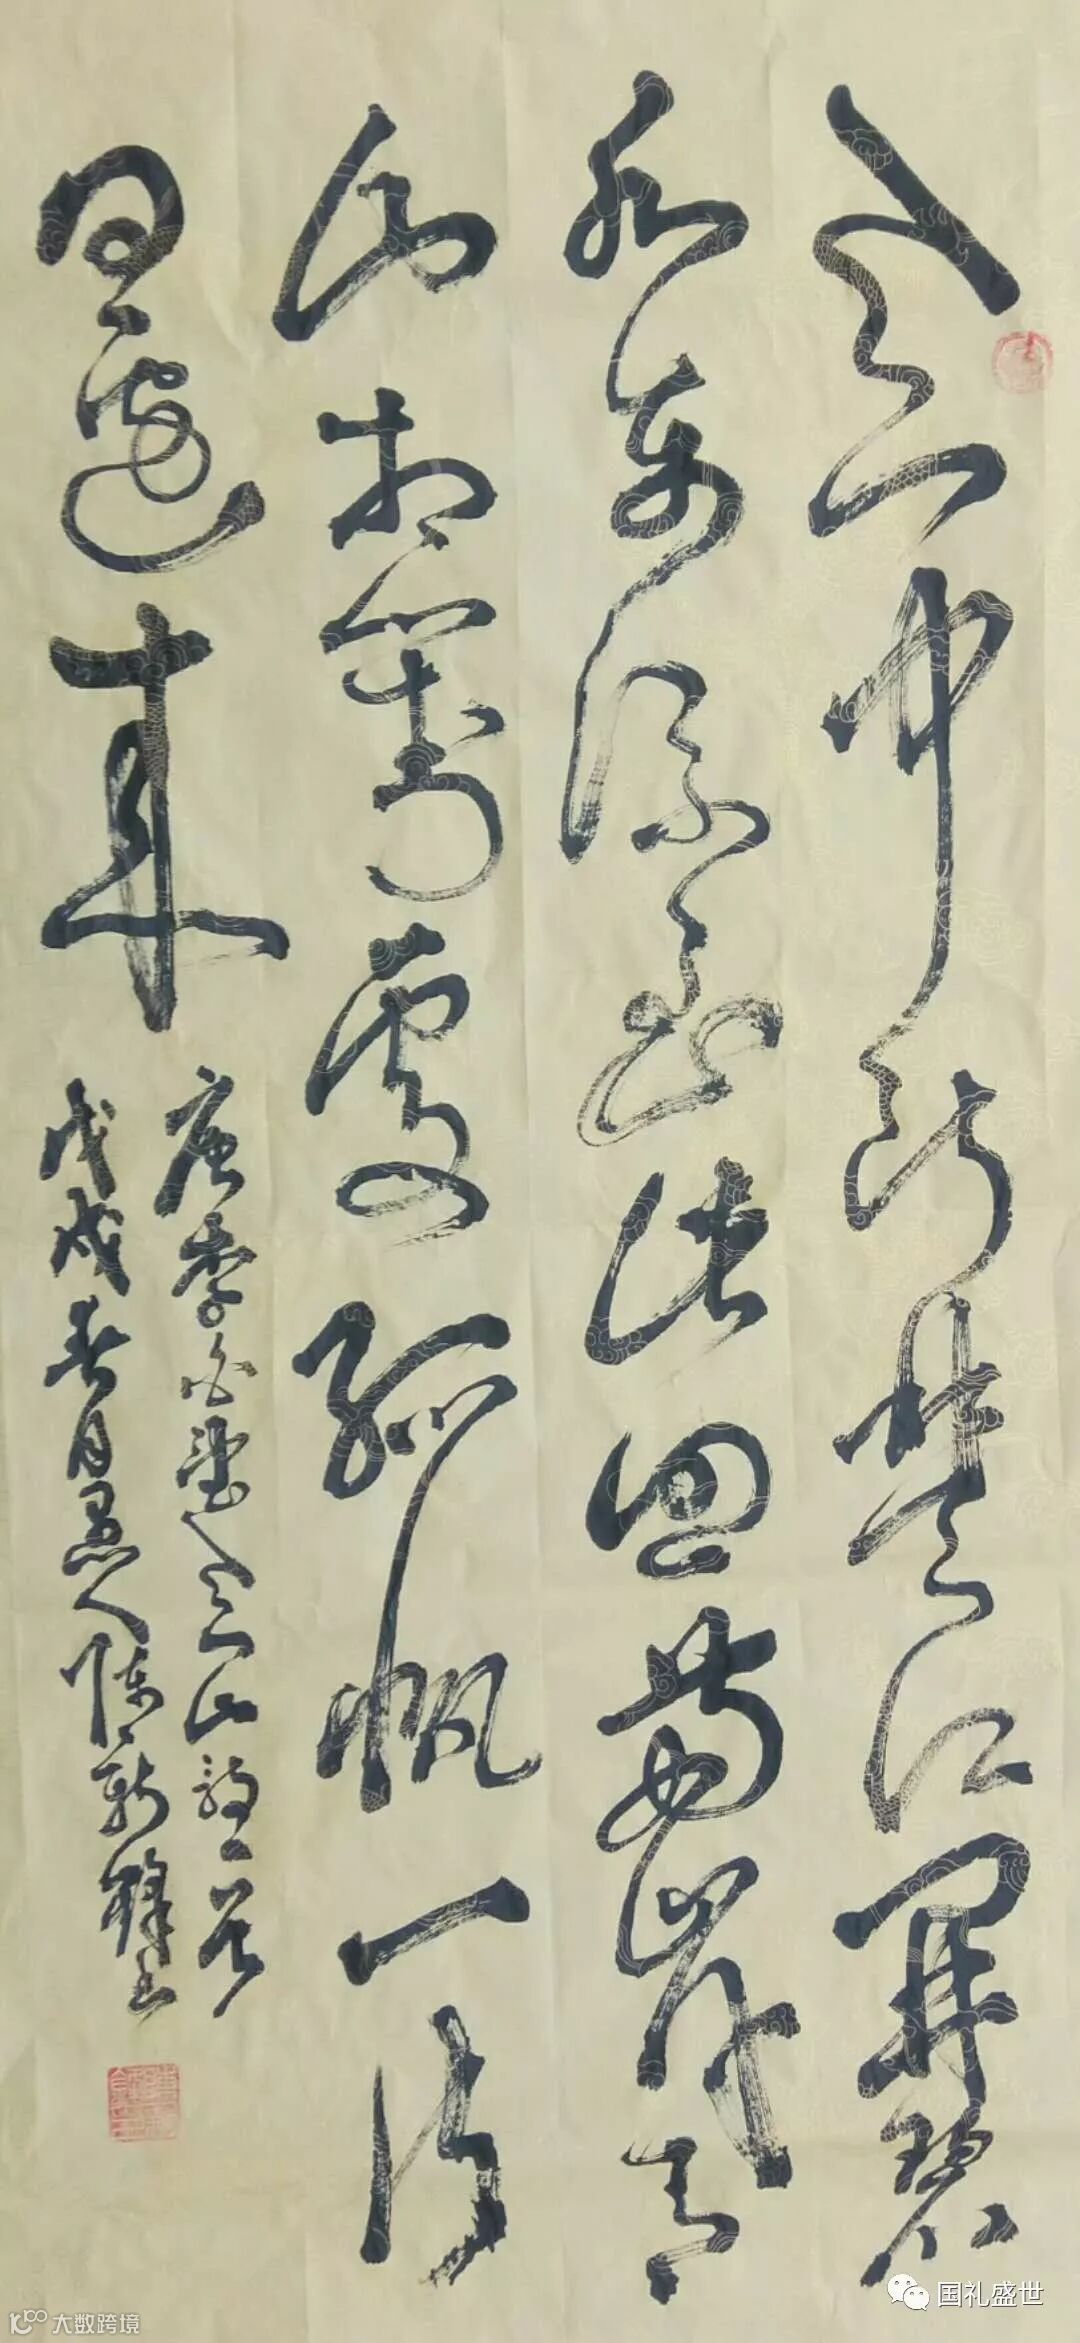 天门中断楚江开碧
水东流至此回兩岸青
山相對處孤帆一片
日邊來
唐李白望天门山诗一首
戊戌春月愚人陈新锋书
国礼盛世
大数跨境